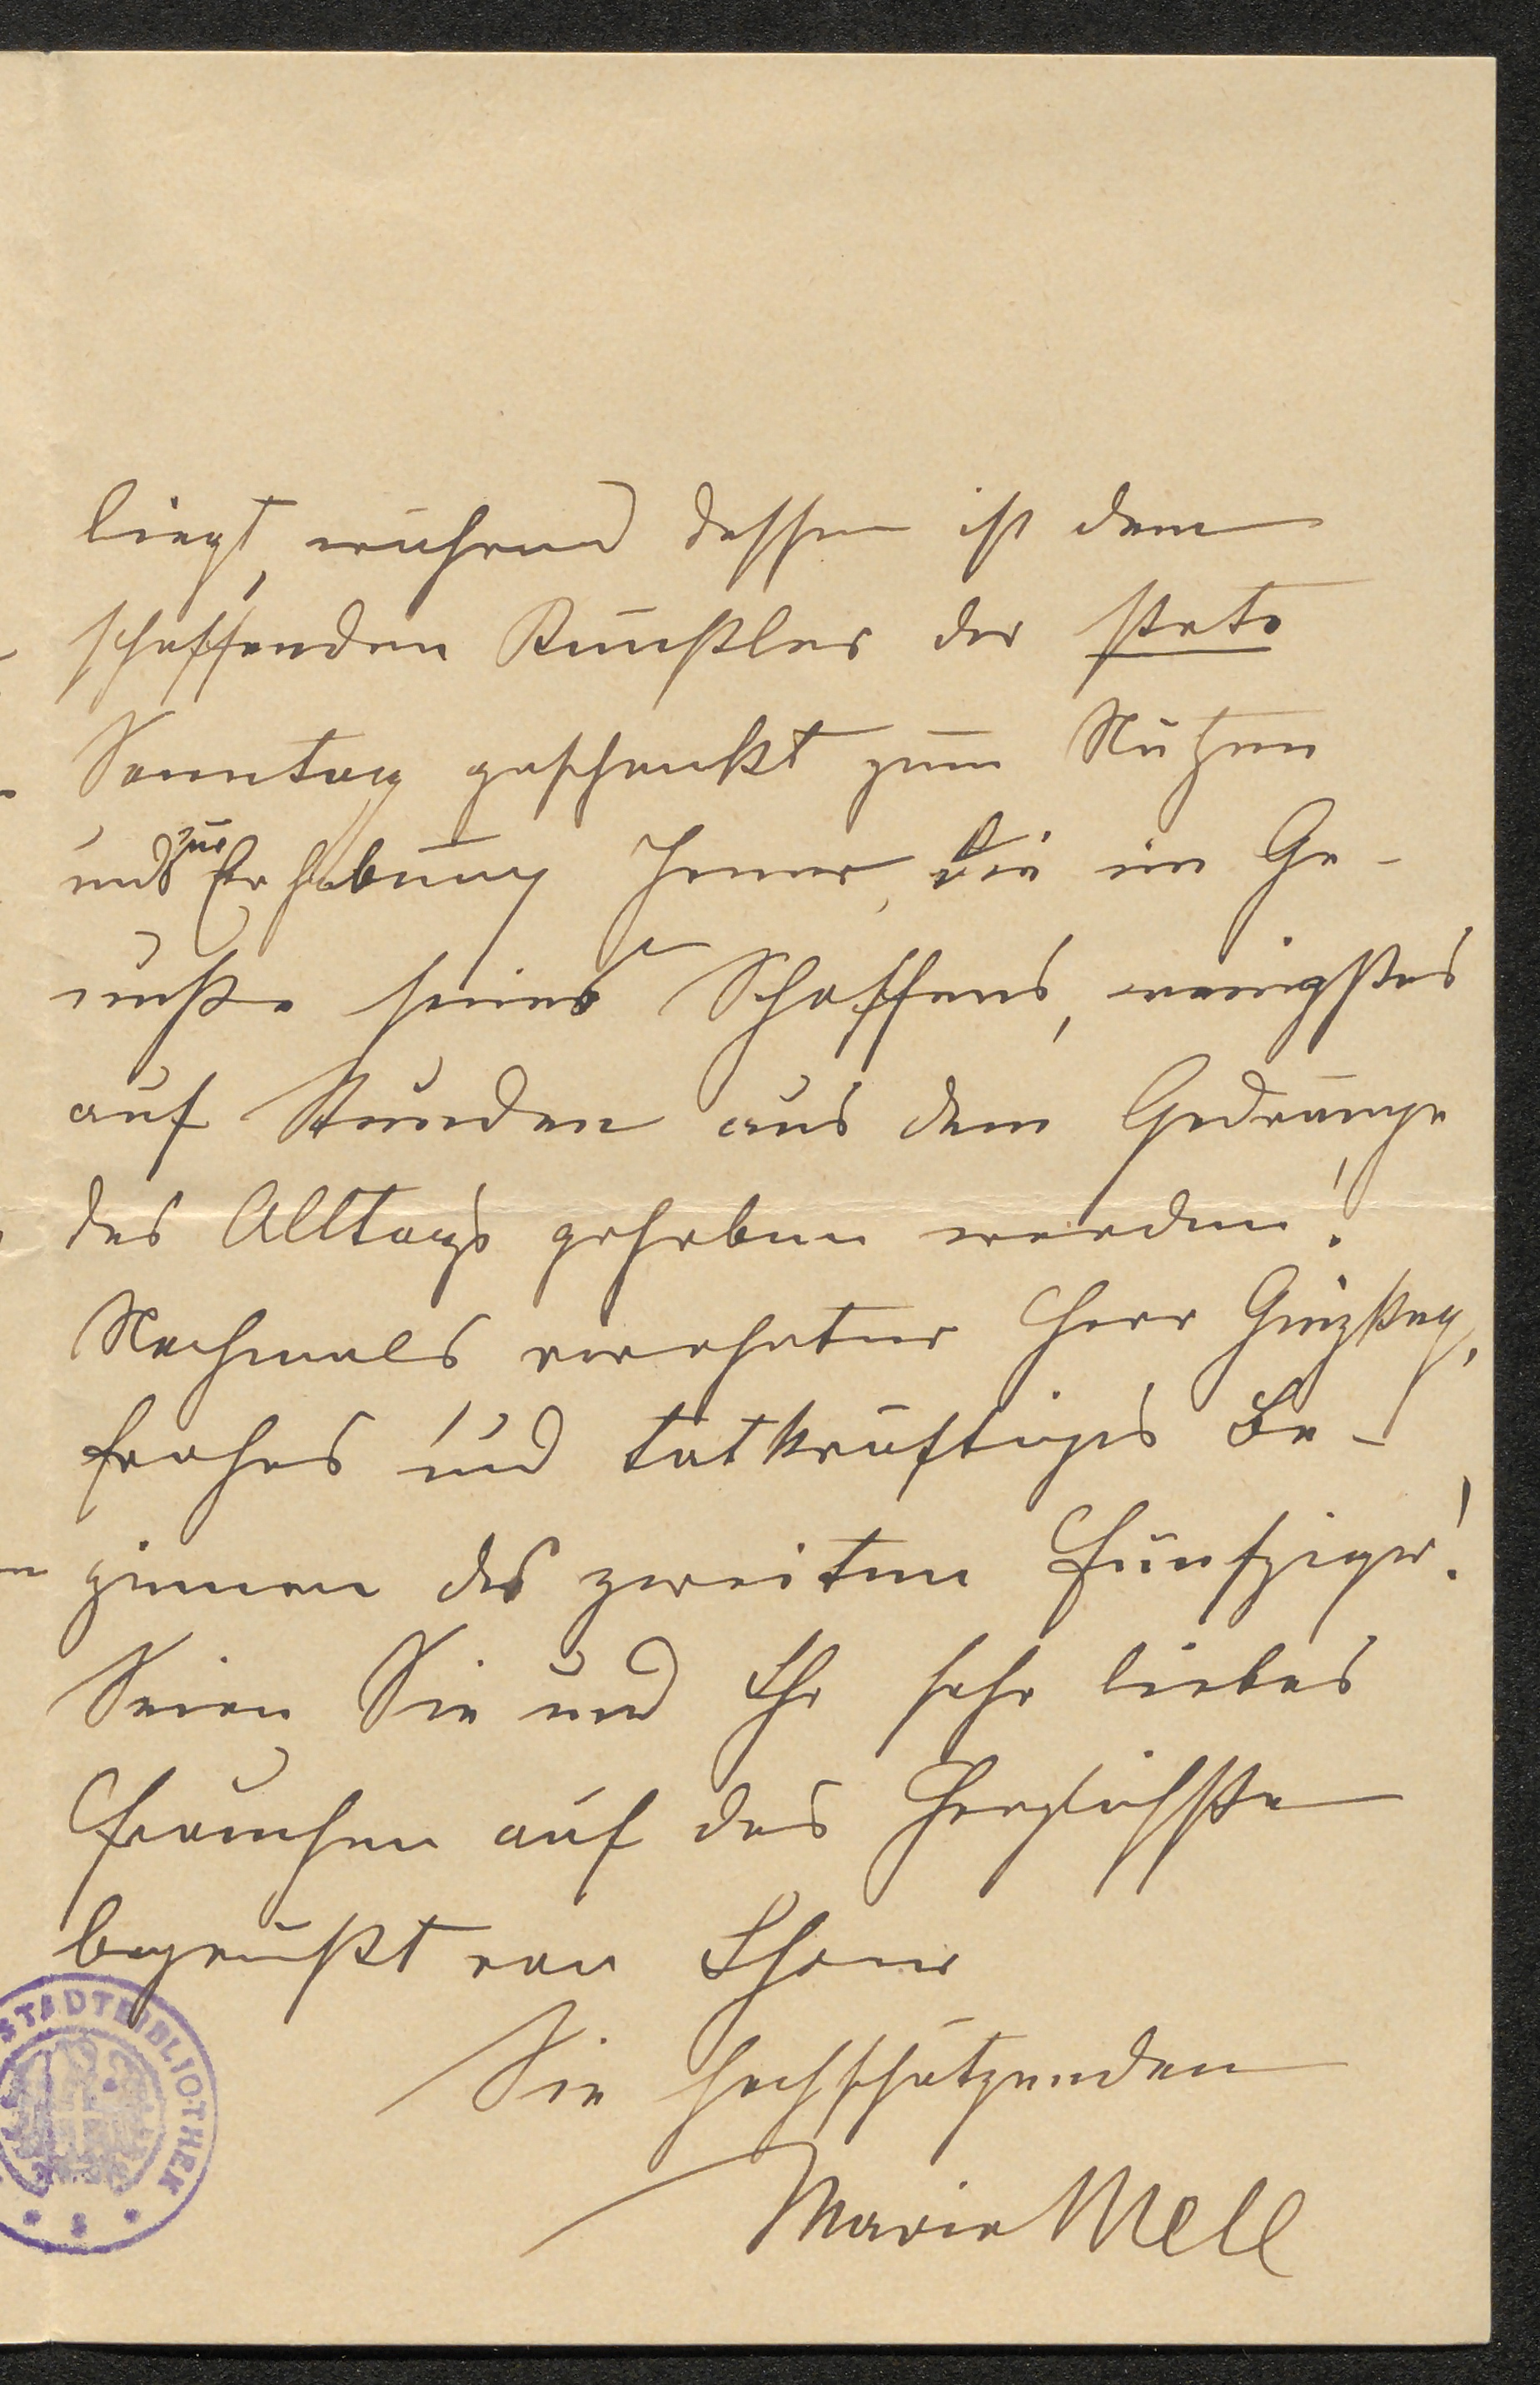 liegt, während dessen ist dem
schaffenden Künstler der stete
Sonntag geschenkt zum Nutzen
und zur Erhebung Jener, die im Ge-
nuße seines Schaffens, wenigstens
auf Stunden aus dem Gedränge
des Alltags gehoben werden!
Nochmals verehrter Herr Ginzkey,
frohes und tatkräftiges Be-
ginnen des zweiten Fünfziger!
Seien Sie und Ihr sehr liebes
Frauchen auf das Herzlichste
begrüßt von Ihrer
Sie hochschätzenden
Marie Mell
STADTBIBLIOTHEK